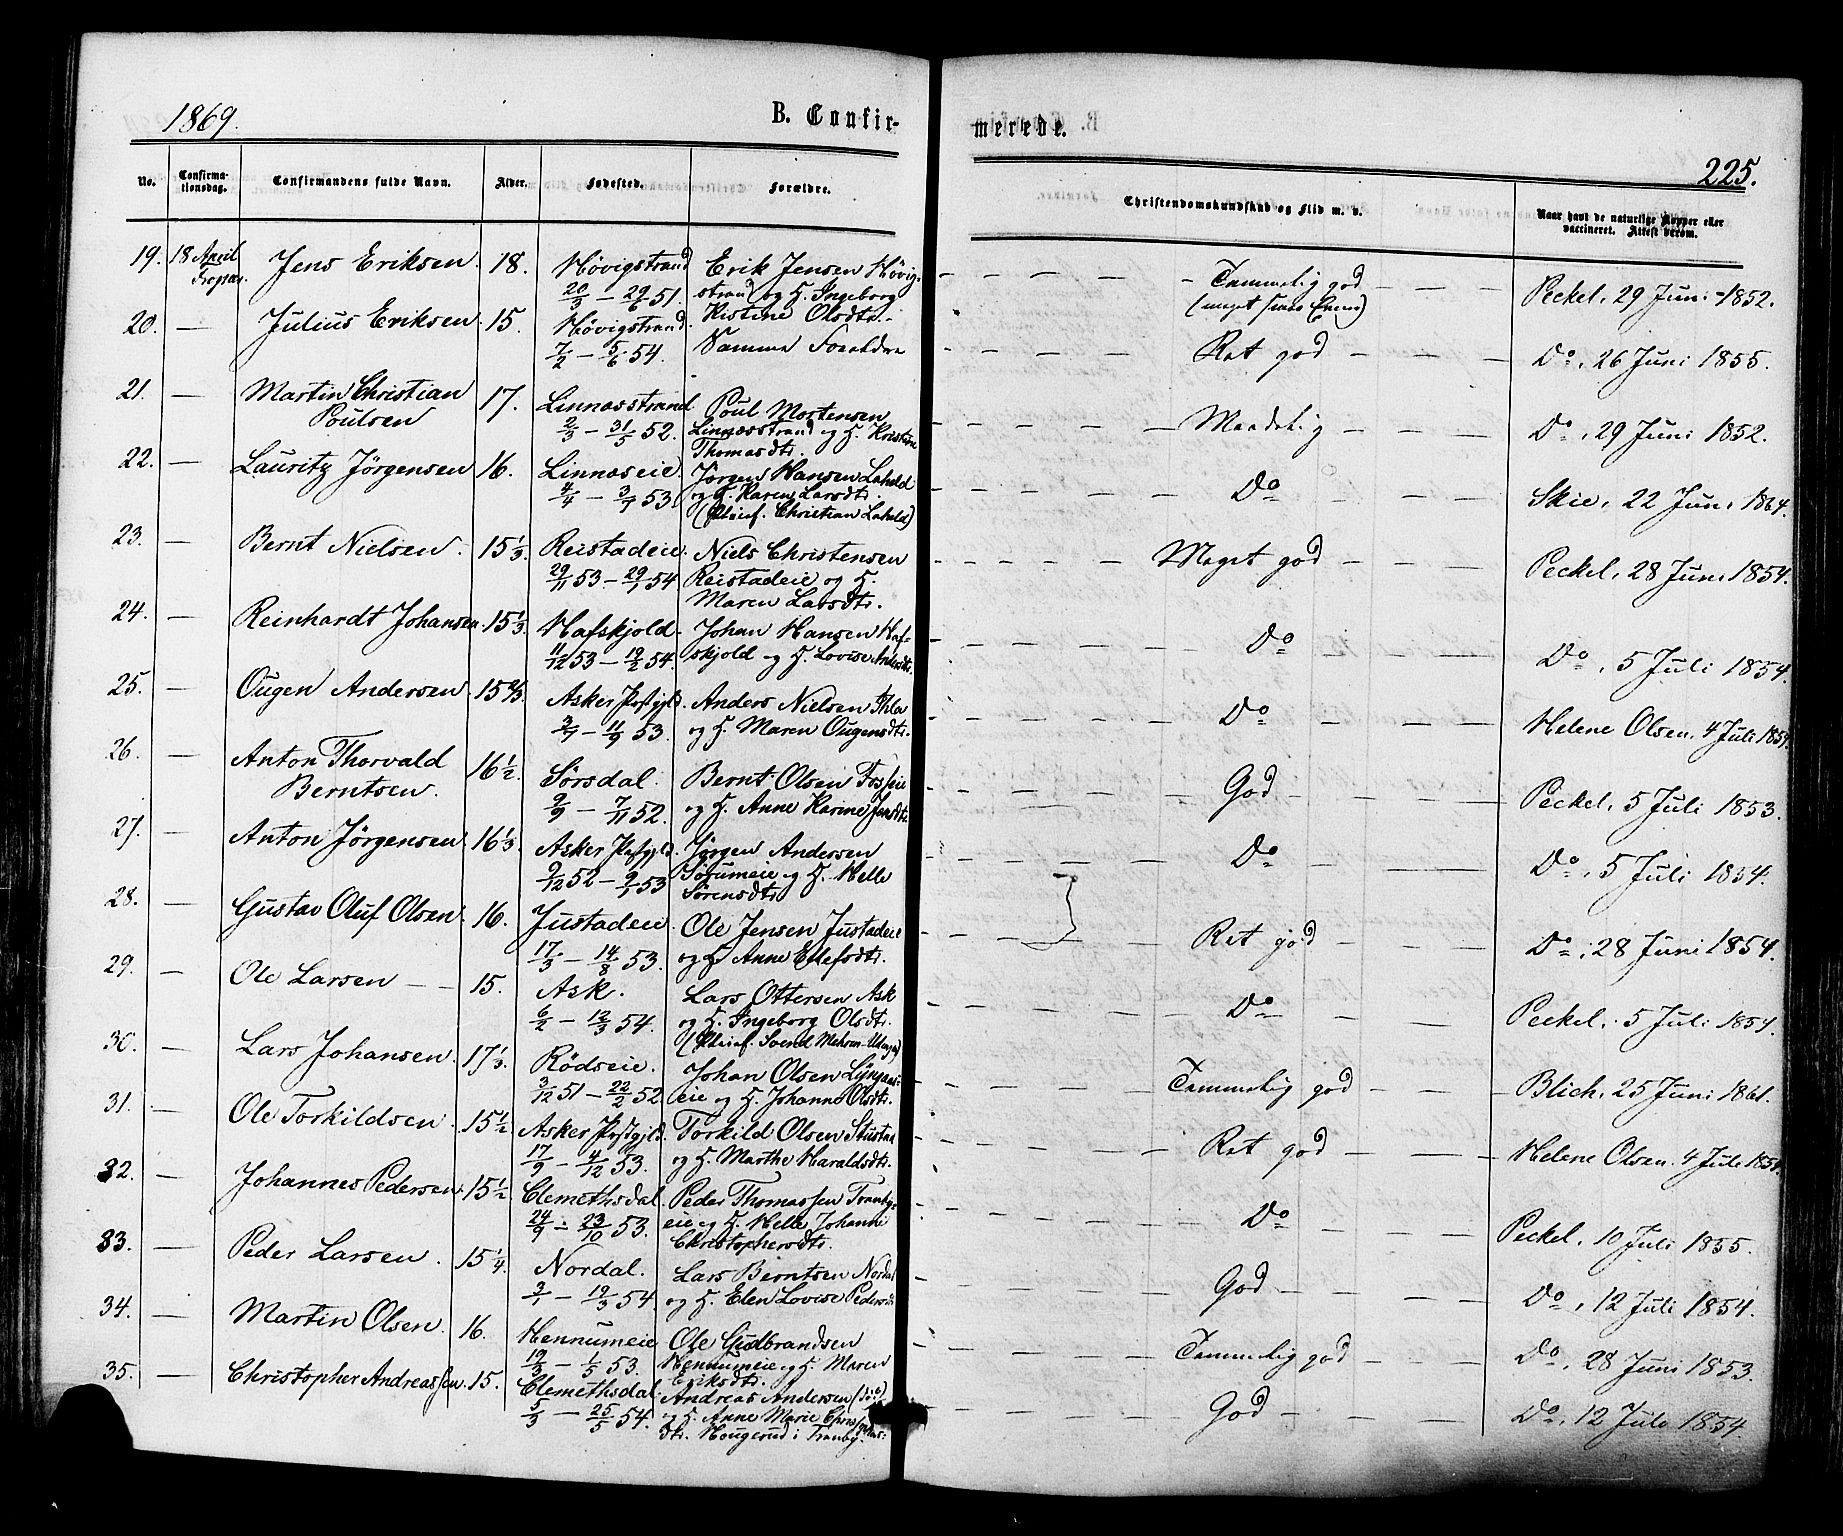 1869.
B. Confir-
merede.
225.
No. Confirma-tionsdag. Confirmandens fulde Navn. Alder. Fødested. Forældre. Christendomskundskab og Flid m. v. Naar havt de naturlige Kopper eller vaccineret. Attest derom.
19. 18 April Jens Eriksen. 18. Hövigstrand Erik Jensen Hövig- Tammelig god Peckel, 29 Juni 1852.
20/3 — 29/6 51. strand og H. Ingeborg (meget svare Evner)
Kistine Olsdtr.
20. — Julius Eriksen 15. Hövigstrand Samme Forældre Ret god Do, 26 Juni 1855.
7/2 — 5/6 54.
21. — Martin Christian 17. Linnæsstrand Poul Mortensen Maadelig Do, 29 Juni 1852.
Poulsen 2/3 — 31/5 52. Linnæsstrand og H. Kristine
Thomasdtr.
22. — Lauritz Jörgensen 16. Linnæseie Jörgen Hansen Laheld Do Skie, 22 Juni 1864.
4/4 — 3/7 53 og H. Karen Larsdtr.
(Pleief. Christian Laheld)
23. — Bernt Nielsen. 15 1/3 Reistadeie. Niels Christensen Meget god Peckel, 28 Juni 1854.
29/11 53 — 29/1 54 Reistadeie og H.
Maren Larsdtr.
24. — Reinhardt Johansen 15 1/3 Hafskjold. Johan Hansen Haf- Do Do, 5 Juli 1854.
11/12 53 — 19/2 54. skjold og H. Lovise Andersdtr.
25. — Ougen Andersen. 15 2/3. Asker Præstgjld. Anders Nielsen Do Helene Olsen, 4 Juli 1854.
3/7 — 11/9 53. og H. Maren Ougensdtr.
26. — Anton Thorvald 16 1/2. Sörsdal. Bernt Olsen Fosseie God Peckel, 5 Juli 1853.
Berntsen. 9/9 — 7/11 52. og H. Anne Karine Jensdtr.
27. — Anton Jörgensen 16 1/3. Asker Præstgjld. Jörgen Andersen Do Do, 5 Juli 1854.
9/12 52 — 9/1 53 Sörumeie og H. Helle
Sörensdtr.
28. — Gustav Oluf Olsen. 16. Justadeie Ole Jensen Justadeie Ret god Do, 28 Juni 1854.
17/3 — 14/8 53. og H. Anne Ellefsdtr.
29. — Ole Larsen 15. Ask. Lars Ottersen Ask Do Peckel, 5 Juli 1854.
6/2 — 12/3 54. og H. Ingeborg Olsdtr.
(Pleief. Svend Mehren
30. Lars Johansen. 17 1/3. Rödseie. Johan Olsen Lyngaas- Tammelig god Blich, 25 Juni 1861.
3/12 51 — 22/2 52 eie og H. Johanne Olsdtr.
31. — Ole Torkildsen 15 1/2 Asker Præstgjld. Torkild Olsen Ret god Helene Olsen. 4 Juli 1854.
17/9 — 4/12 53. og H. Marthe Haraldsdtr.
32. — Johannes Pedersen. 15 1/2 Clemethsdal. Peder Thomassen Tranby- Do Peckel, 10 Juli 1855.
24/9 — 23/10 53. eie og H. Helle Johanne
Christophersdtr.
33. — Peder Larsen. 15 1/4. Nordal. Lars Berntsen Nordal God Do, 12 Juli 1854.
3/1 — 19/3 54 og H. Elen Lovise Pedersdtr
34. — Martin Olsen. 16. Hennumeie Ole Gudbrandsen Tammelig god Do, 28 Juni 1853.
19/3 — 1/5 53. Hennumeie og H. Maren
Eriksdtr.
35. — Christopher Andreassen. 15. Clemethsdal. Andreas Andersen God Do, 12 Juli 1854.
5/3 — 25/5 54. og H. Anne Marie
dtr. Hougerud i Tranby.